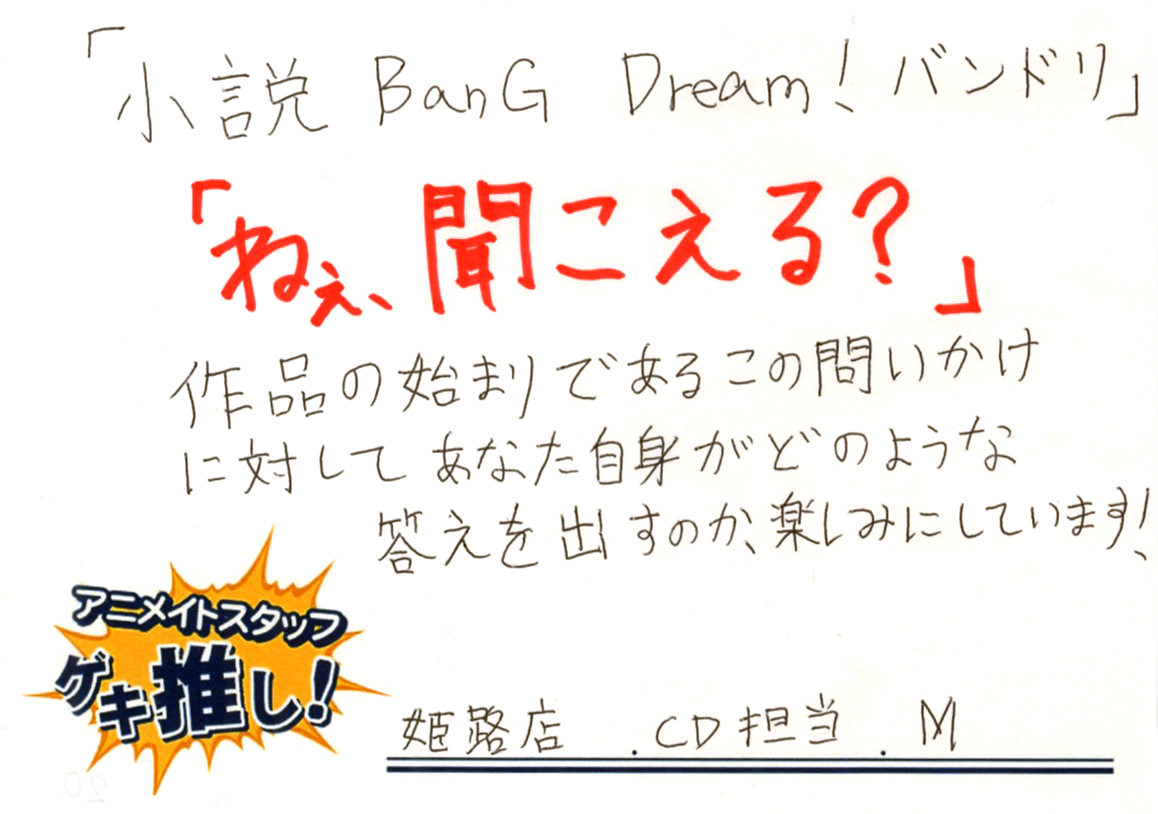 「小説 BanG Dream! バンドリ」
「ねぇ、聞こえる?」
作品の始まりであるこの問いかけ
に対してあなた自身がどのような
答えを出すのか、楽しみにしています!
アニメイトスタッフ
ゲキ推し!
姫路店 . CD担当 . M